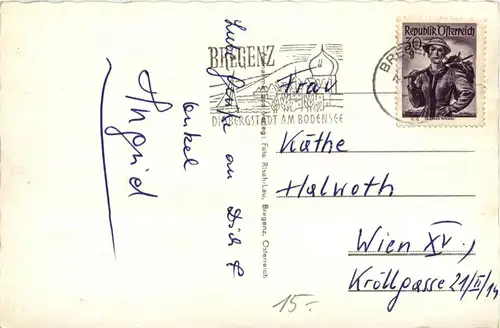 Liebe Grüße an Dich &
Onkel
Ingrid
BREGENZ
DIE BERGSTADT AM BODENSEE
Foto Risch-Lau, Bregenz, Österreich
Republik Österreich
30
BREG
Frau
Käthe
Halwoth
Wien XV.,
Kröllgasse 21/II/14
15.-